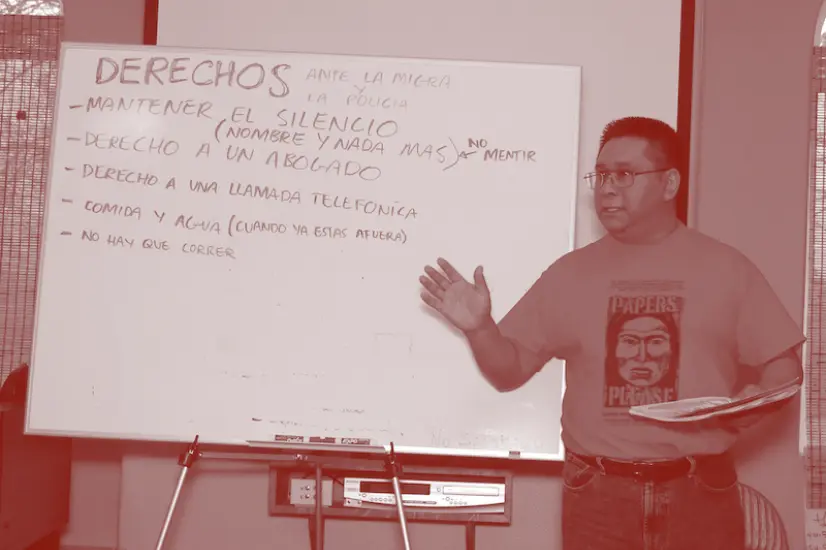 DERECHOS ANTE LA MIGRA
Y
LA POLICIA
- MANTENER EL SILENCIO
(NOMBRE Y NADA MAS) NO MENTIR
- DERECHO A UN ABOGADO
- DERECHO A UNA LLAMADA TELEFONICA
- COMIDA Y AGUA (CUANDO YA ESTAS AFUERA)
- NO HAY QUE CORRER
PAPERS
PLEASE